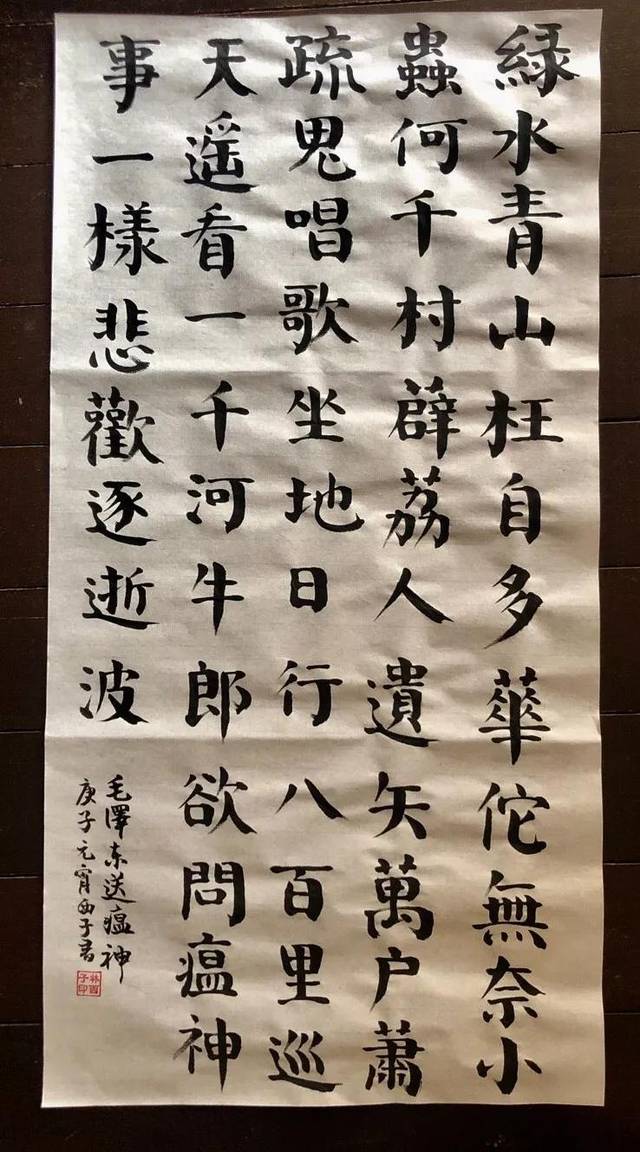 緑水青山枉自多華佗無奈小
蟲何千村薜荔人遺矢萬户蕭
疏鬼唱歌坐地日行八百里巡
天遥看一千河牛郎欲問瘟神
事一樣悲歡逐逝波
毛澤东送瘟神
庚子元宵西子書
林西子印